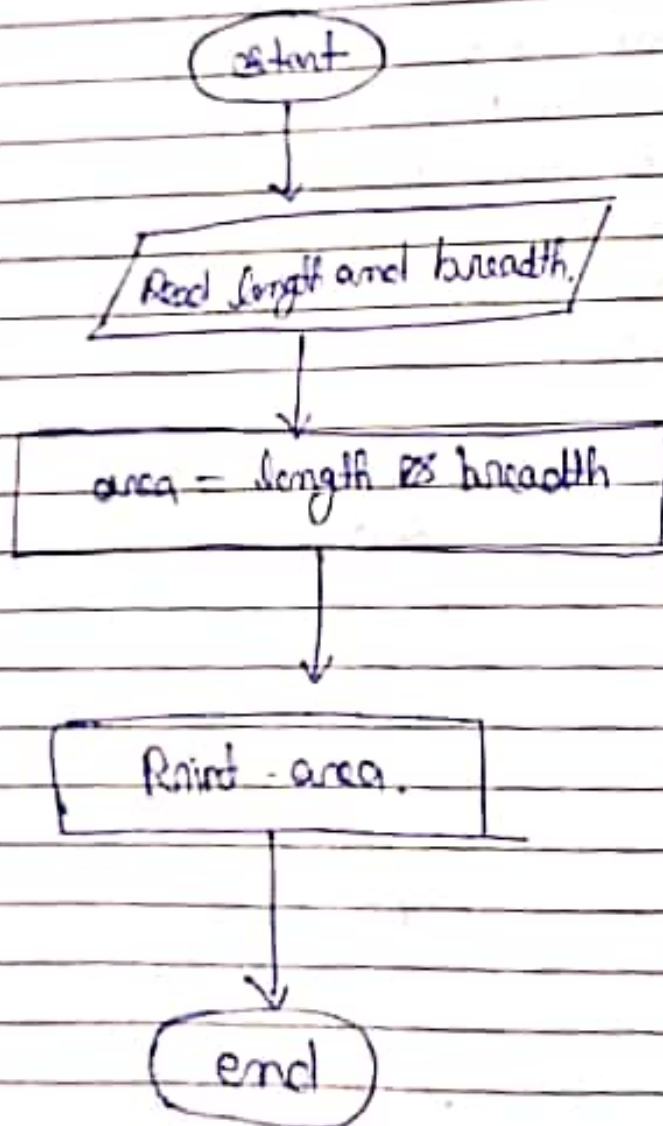 start
Read length and breadth.
area = length * breadth
Print area.
end